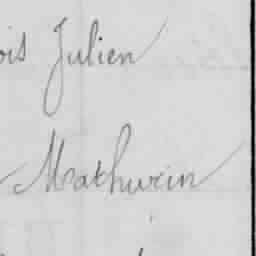 ois Julien
Mathurin